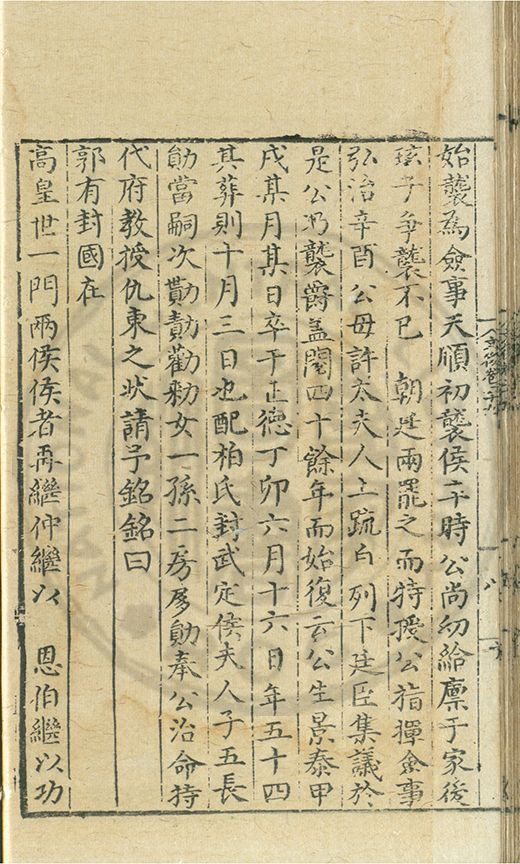 始襲為僉事天順初襲侯卒時公尚幼給廪于家後
珎子爭襲不已　朝是兩罷之而特授公指揮僉事
弘治辛酉公母許太夫人上疏自列下廷臣集議於
是公乃襲爵盖閱四十餘年而始復云公生景泰甲
戌某月某日卒于正徳丁卯六月十六日年五十四
其葬則十月三日也配柏氏封武定侯夫人子五長
勛當嗣次勩勣勸勑女一孫二房房勛奉公治命持
代府教授仇東之状請予銘銘曰
郭有封國在
高皇世一門兩侯侯者再繼仲繼以　恩伯繼以功